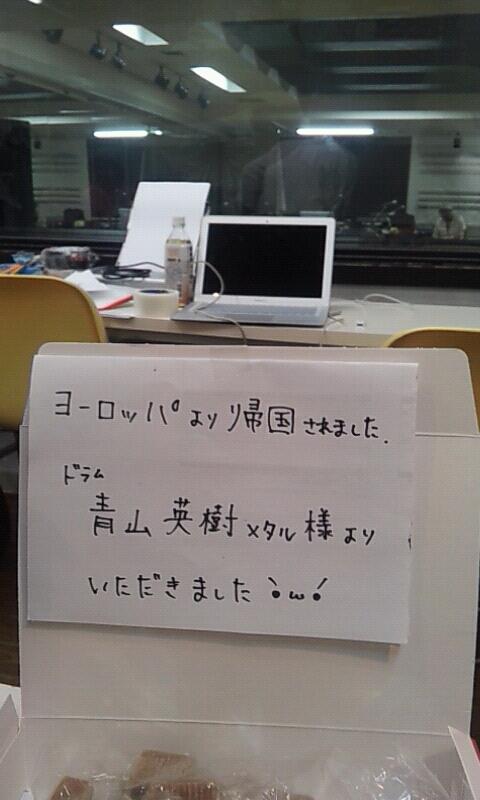 ヨーロッパより帰国されました.
ドラム
青山英樹メタル様より
いただきました`•ω•´